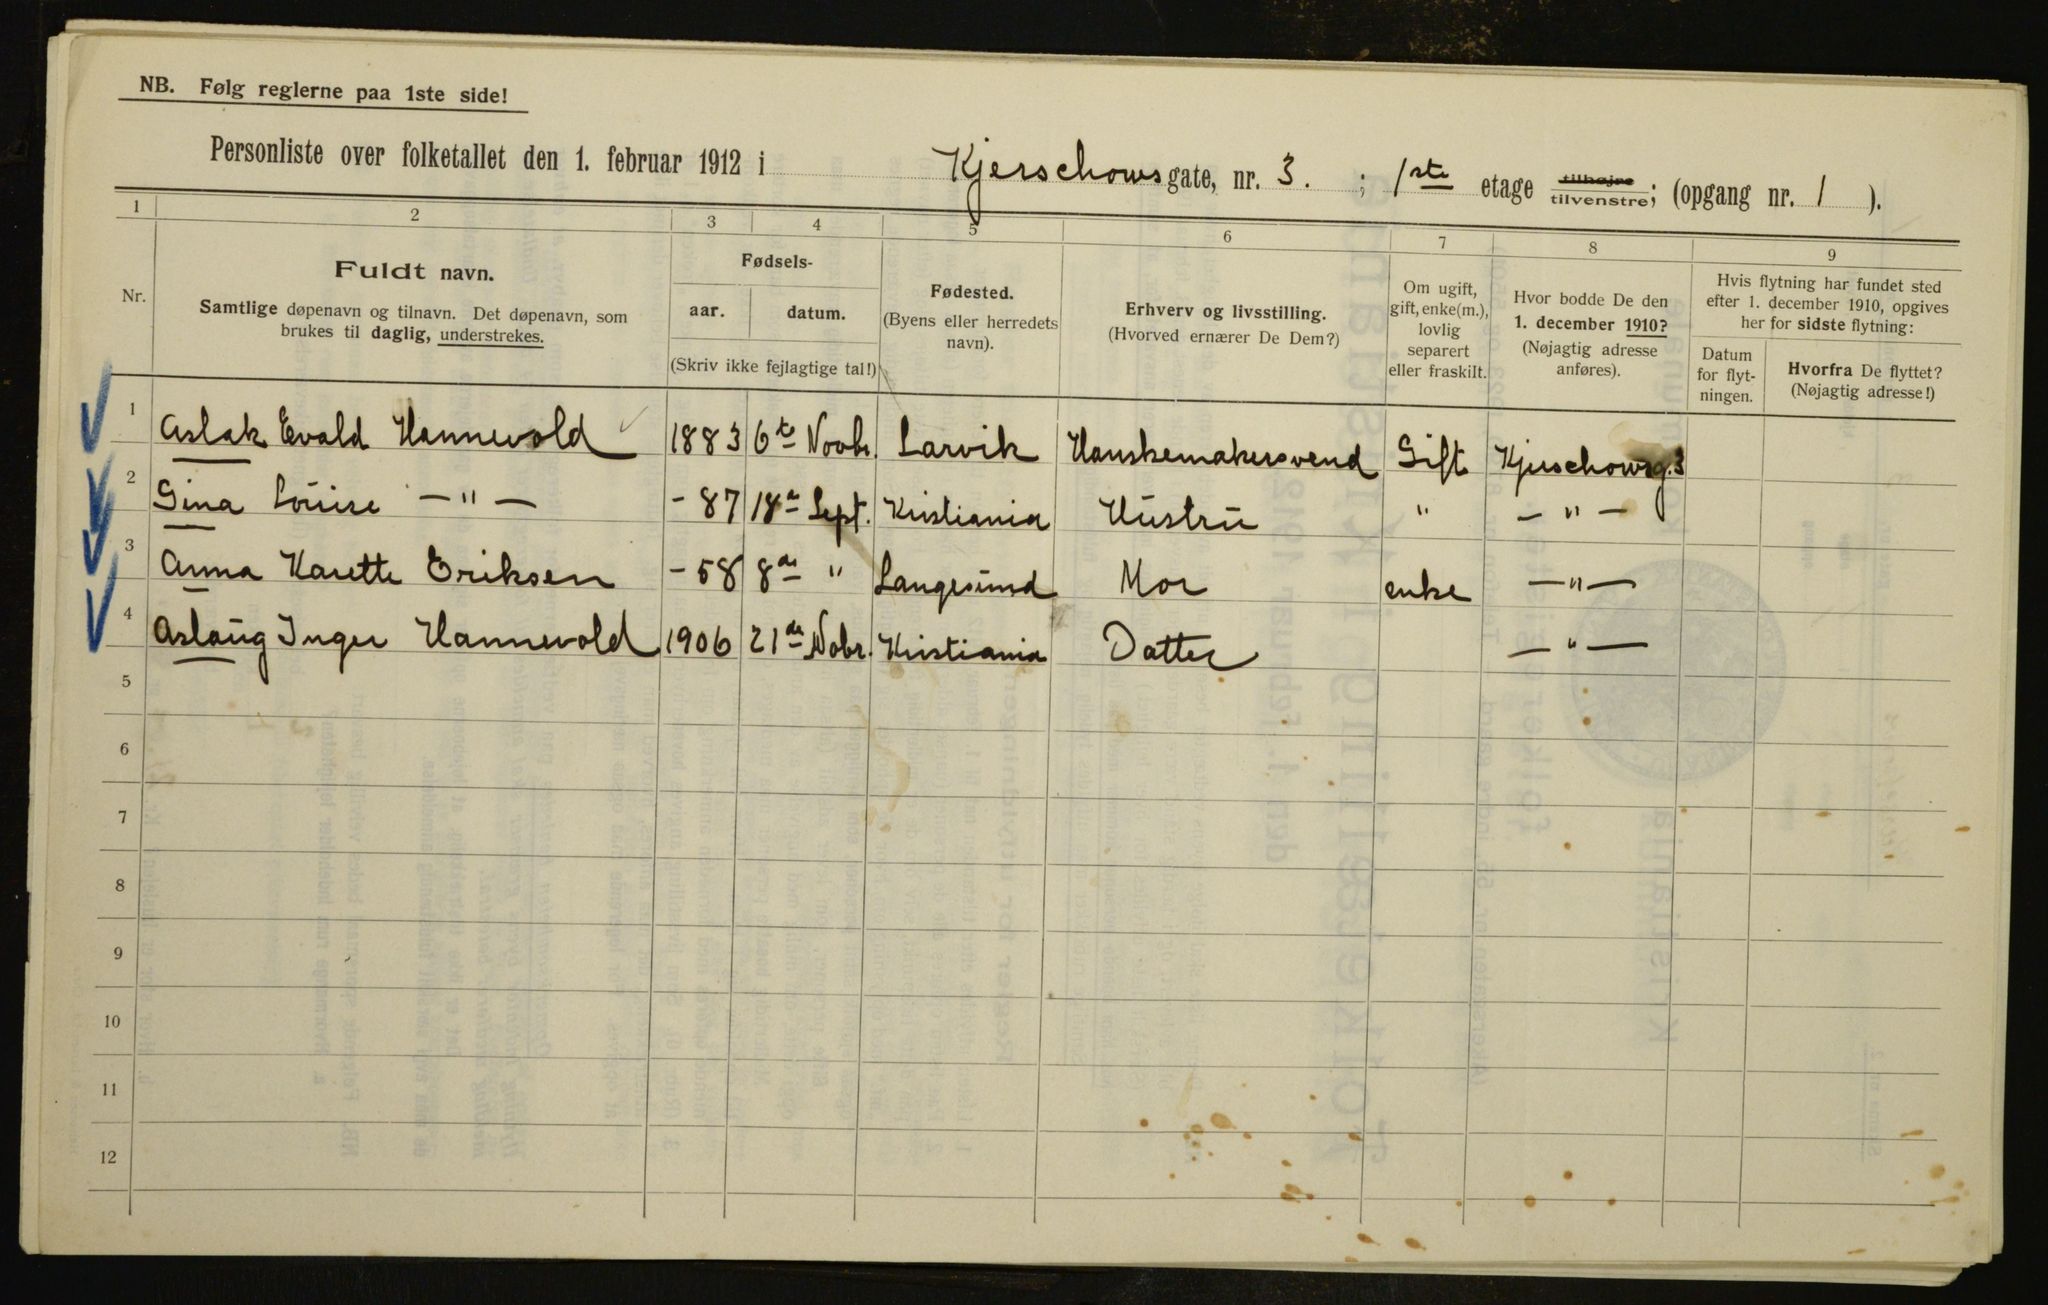 NB. Følg reglerne paa 1ste side!
Personliste over folketallet den 1. februar 1912 i Kjerschows gate, nr. 3. ; 1ste etage tilhøjre tilvenstre; (opgang nr. 1 ).
1 2 3 4 5 6 7 8 9
Nr.
Fuldt navn.
Samtlige døpenavn og tilnavn. Det døpenavn, som
brukes til daglig, understrekes.
Fødsels-
aar. datum.
(Skriv ikke fejlagtige tal!)
Fødested.
(Byens eller herredets
navn).
Erhverv og livsstilling.
(Hvorved ernærer De Dem?)
Om ugift,
gift, enke(m.),
lovlig
separert
eller fraskilt.
Hvor bodde De den
1. december 1910?
(Nøjagtig adresse
anføres).
Hvis flytning har fundet sted
efter 1. december 1910, opgives
her for sidste flytning:
Datum
for flyt-
ningen.
Hvorfra De flyttet?
(Nøjagtig adresse!)
1 Aslak Evald Hannevold 1883 6te Novbr. Larvik Hanskemakersvend Gift Kjerschowsg. 3
2 Gina Louise —"— -87 18de Sept. Kristiania Hustru " —"—
3 Anna Karette Eriksen -58 8de " Langesund Mor enke —"—
4 Aslaug Inger Hannevold 1906 21de Nobr. Kristiania Datter —"—
5
6
7
8
9
10
11
12